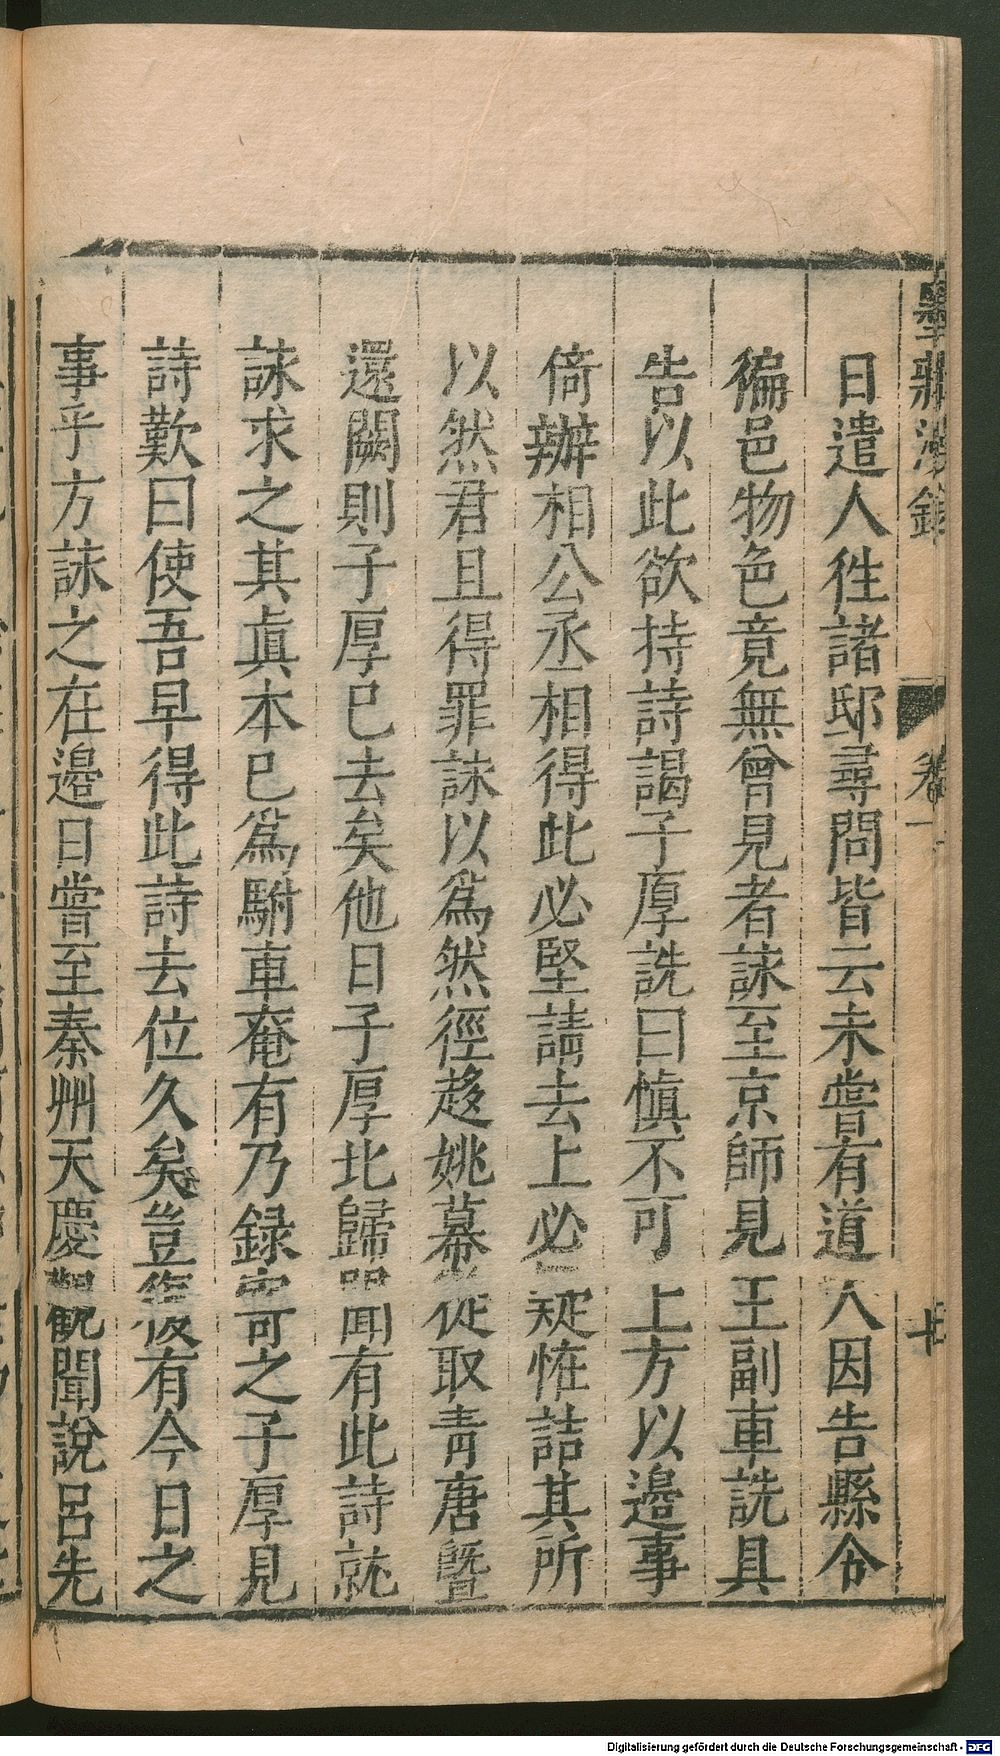 日遣人徃諸邸尋問皆云未嘗有道人因告縣令
徧邑物色竟無曾見者詠至京師見王副車詵具
告以此欲持詩謁子厚詵曰愼不可上方以邊事
倚辦相公丞相得此必堅請去上必疑恠詰其所
以然君且得罪詠以爲然徑趍姚幕從取青唐曁
還闕則子厚已去矣他日子厚北歸聞有此詩就
詠求之其眞本已爲駙車奄有乃録寄之子厚見
詩歎曰使吾早得此詩去位久矣豈復有今日之
事乎方詠之在邊日嘗至秦州天慶觀聞說呂先
卷一
Digitalisierung gefördert durch die Deutsche Forschungsgemeinschaft - DFG